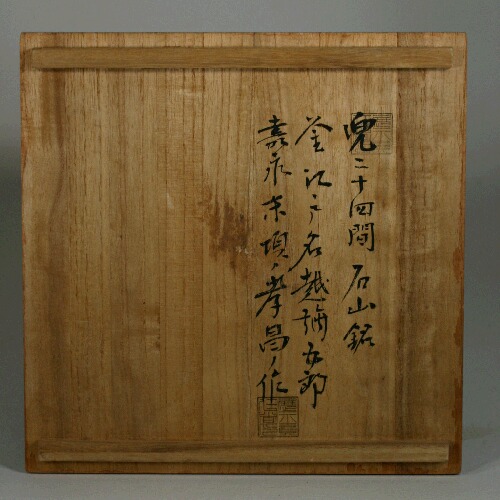 兜二十四間 石山銘
釜 江戸名越弥五郎
嘉永末頃ノ孝昌ノ作